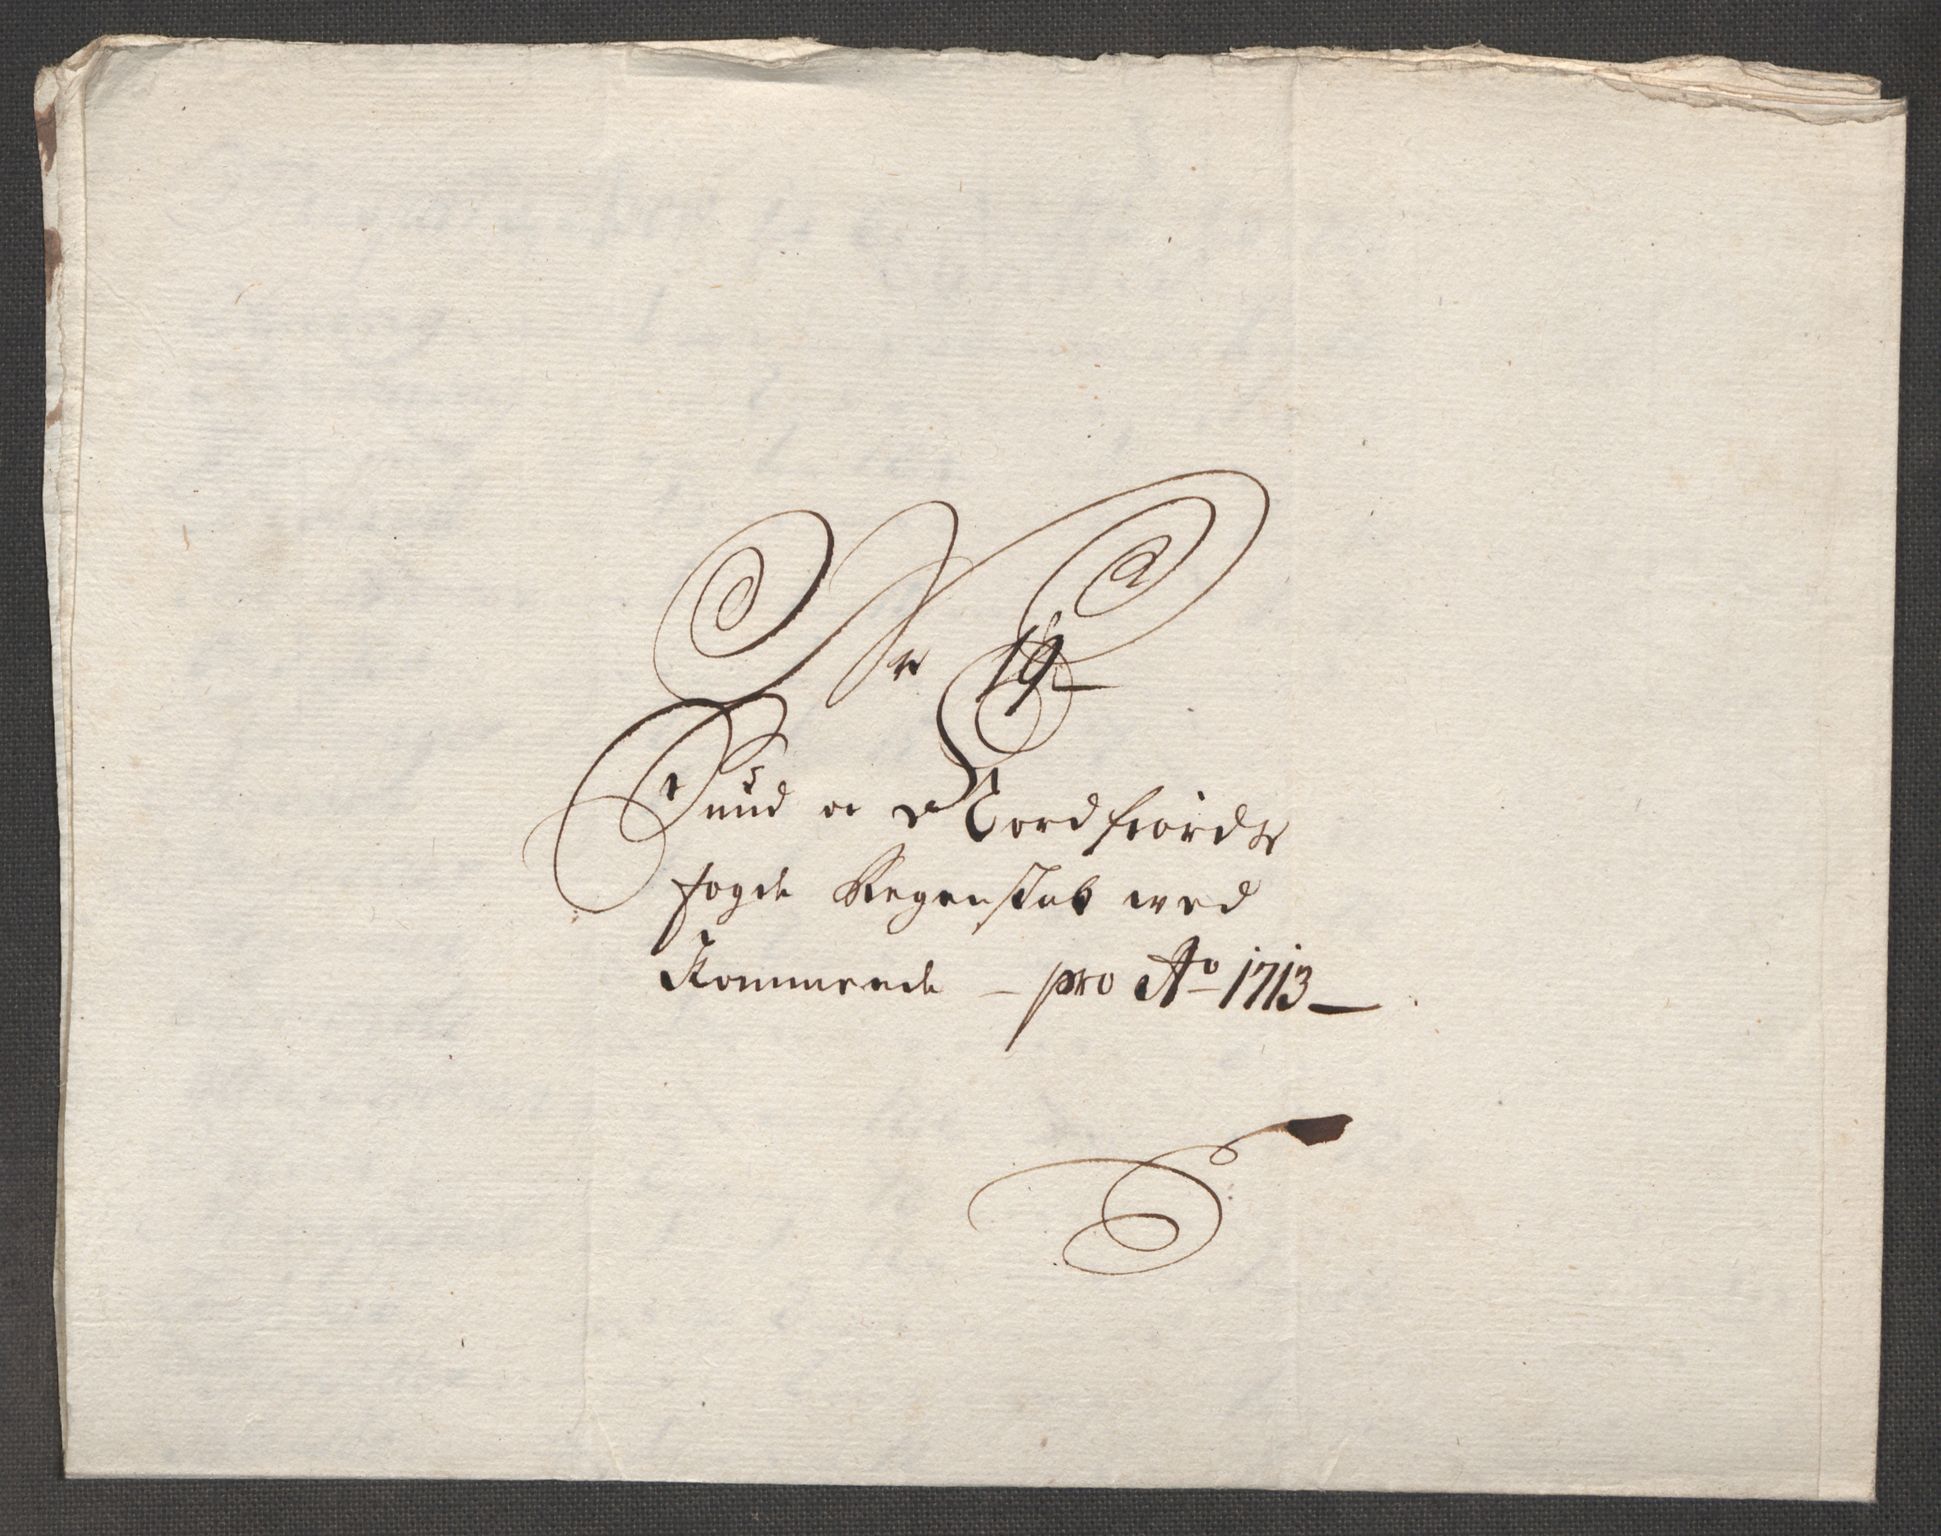 Nr 19
Sund oc Nordfiords
fogde Regenskab wed
Kommende - pro Ao 1713